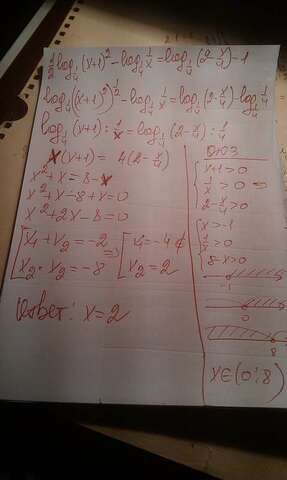 log₁/₄(x+1)² - log₁/₄ 1/x = log₁/₄(2 - x/4) - 1
log₁/₄((x+1)²)^½ - log₁/₄ 1/x = log₁/₄(2 - x/4) - log₁/₄ 1/4
log₁/₄(x+1) : 1/x = log₁/₄(2 - x/4) : 1/4
x(x+1) = 4(2 - x/4)
x² + x = 8 - x
x² + x - 8 + x = 0
x² + 2x - 8 = 0
[x₁ + x₂ = -2 => [x₁ = -4 ∉
x₂ · x₂ = -8 x₂ = 2
Ответ: x = 2
ОДЗ
{x+1 > 0
1/x > 0 =>
2 - x/4 > 0
{x > -1
1/x > 0
8 - x > 0
-1
0
8
x ∈ (0; 8)